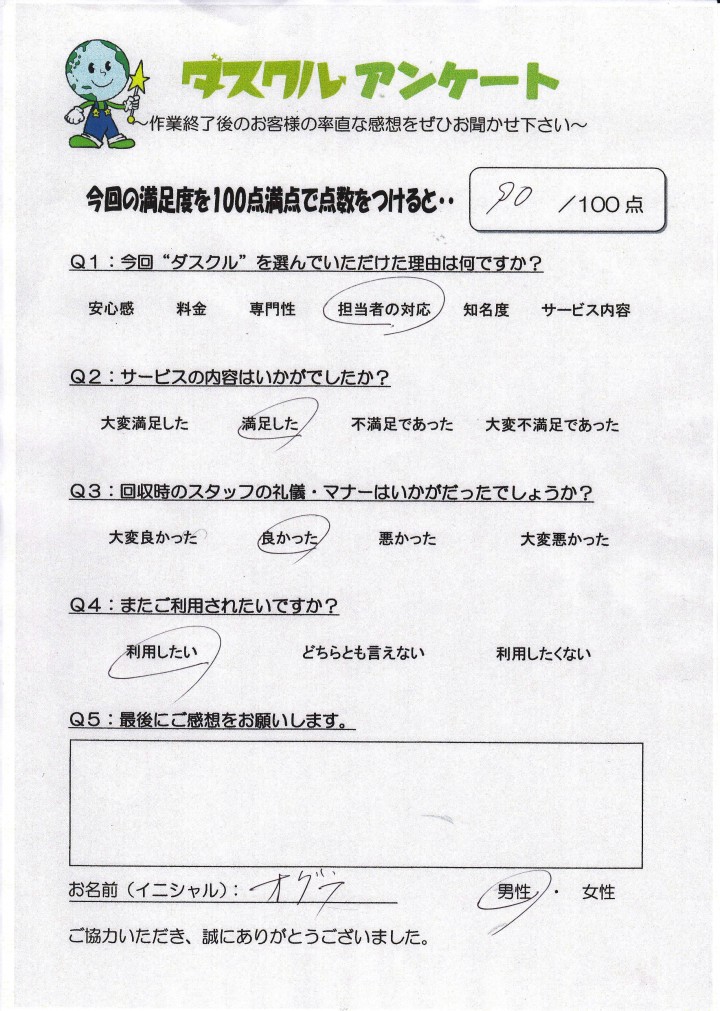 ダスクル アンケート
～作業終了後のお客様の率直な感想をぜひお聞かせ下さい～
今回の満足度を100点満点で点数をつけると‥ 90 /100点
Q1：今回“ダスクル”を選んでいただけた理由は何ですか？
安心感 料金 専門性 担当者の対応 知名度 サービス内容
Q2：サービスの内容はいかがでしたか？
大変満足した 満足した 不満足であった 大変不満足であった
Q3：回収時のスタッフの礼儀・マナーはいかがだったでしょうか？
大変良かった 良かった 悪かった 大変悪かった
Q4：またご利用されたいですか？
利用したい どちらとも言えない 利用したくない
Q5：最後にご感想をお願いします。
お名前（イニシャル）： オグラ 男性 ・ 女性
ご協力いただき、誠にありがとうございました。